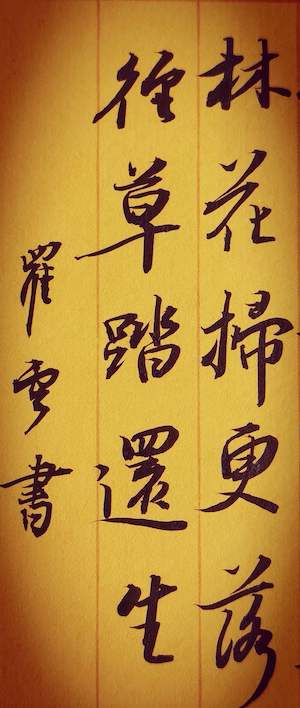 林花掃更落
徑草踏還生
翟雲書